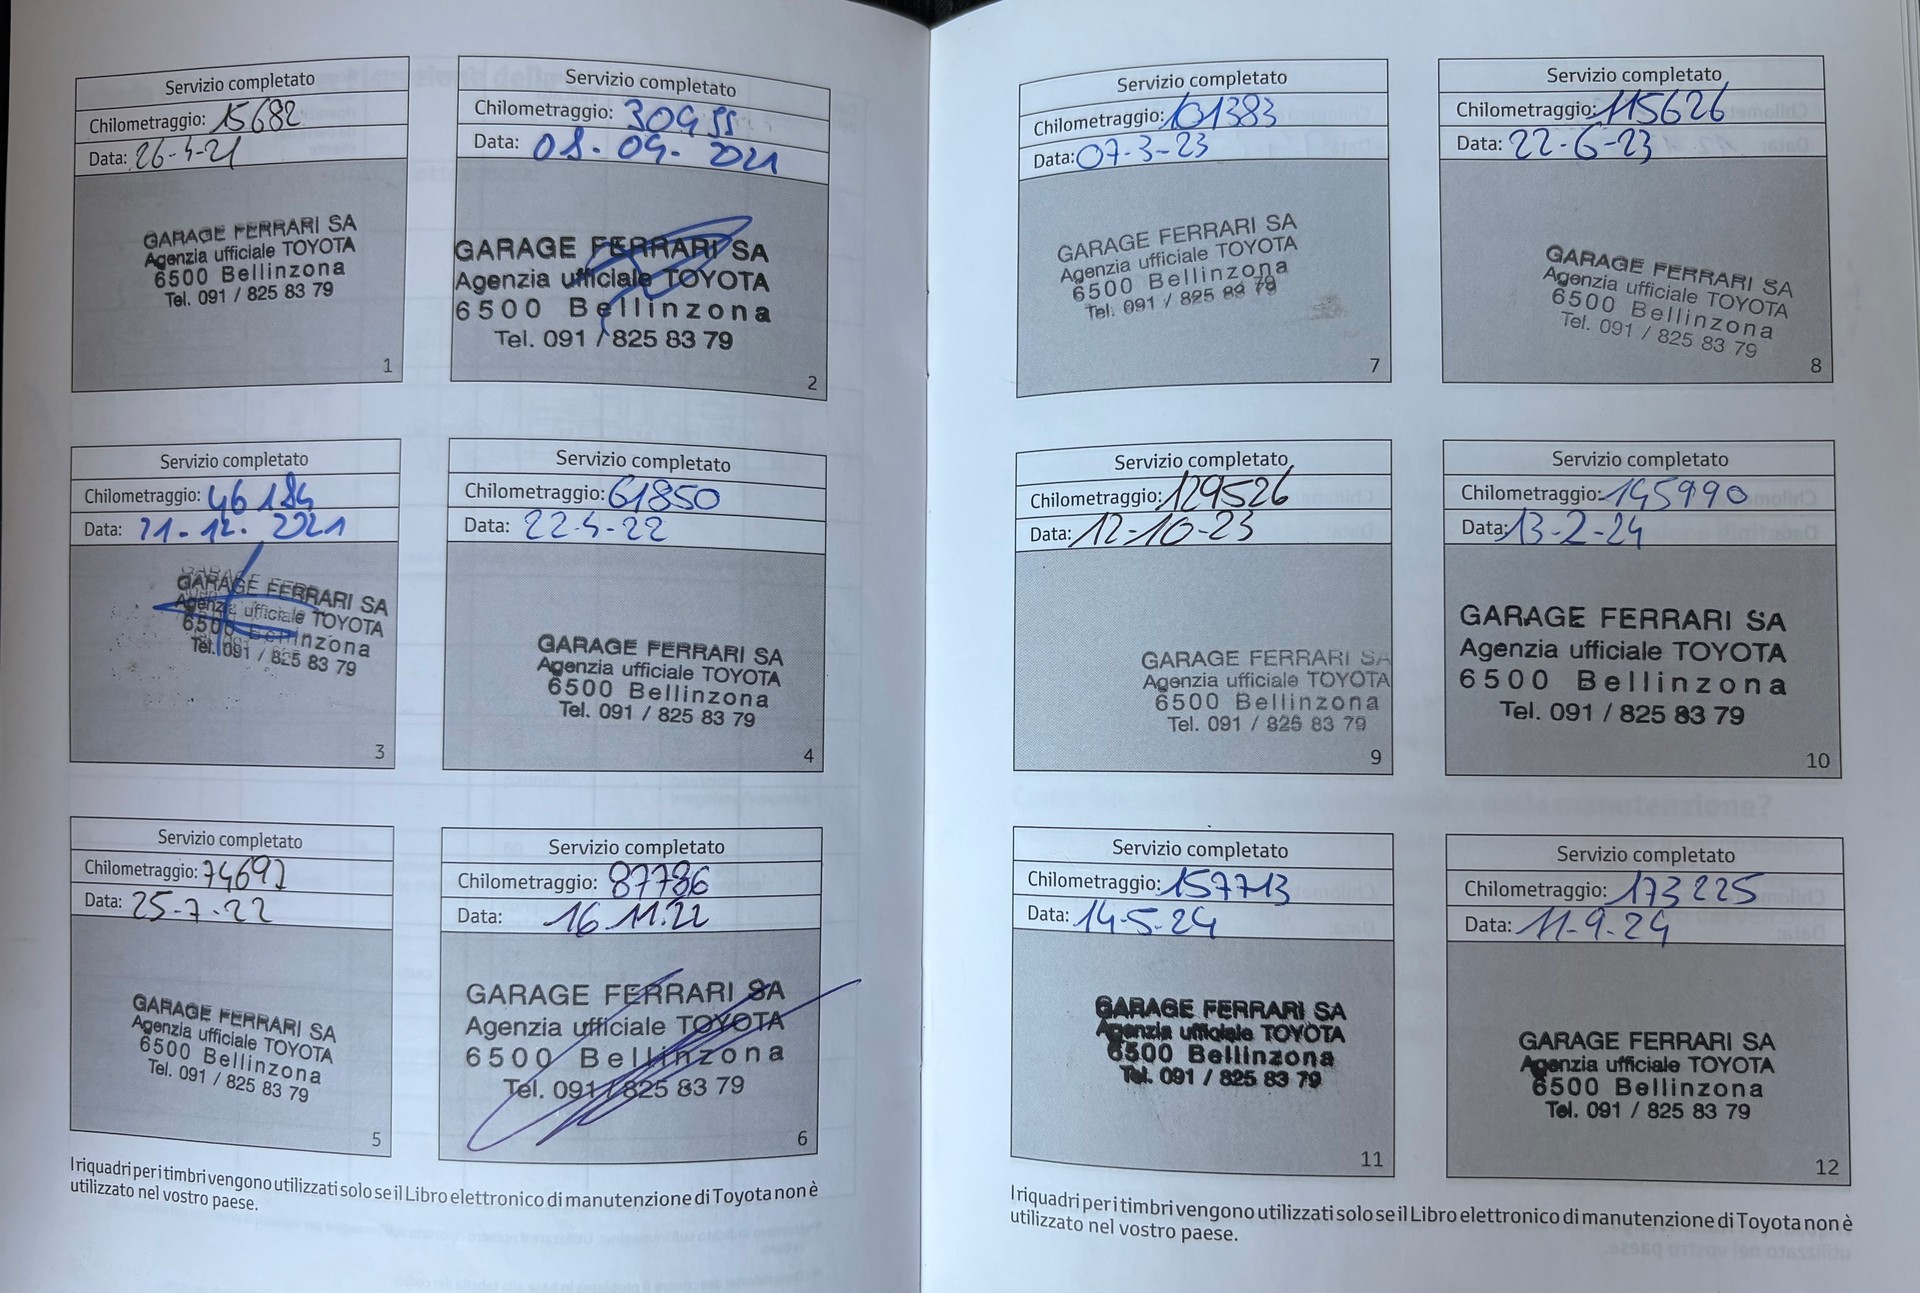 Servizio completato
Chilometraggio: 15682
Data: 26-4-21
GARAGE FERRARI SA
Agenzia ufficiale TOYOTA
6500 Bellinzona
Tel. 091 / 825 83 79
1
Servizio completato
Chilometraggio: 30955
Data: 08-09-2021
GARAGE FERRARI SA
Agenzia ufficiale TOYOTA
6500 Bellinzona
Tel. 091 / 825 83 79
2
Servizio completato
Chilometraggio: 46184
Data: 21-12-2021
GARAGE FERRARI SA
Agenzia ufficiale TOYOTA
6500 Bellinzona
Tel. 091 / 825 83 79
3
Servizio completato
Chilometraggio: 61850
Data: 22-4-22
GARAGE FERRARI SA
Agenzia ufficiale TOYOTA
6500 Bellinzona
Tel. 091 / 825 83 79
4
Servizio completato
Chilometraggio: 74697
Data: 25-7-22
GARAGE FERRARI SA
Agenzia ufficiale TOYOTA
6500 Bellinzona
Tel. 091 / 825 83 79
5
Servizio completato
Chilometraggio: 87786
Data: 16.11.22
GARAGE FERRARI SA
Agenzia ufficiale TOYOTA
6500 Bellinzona
Tel. 091 / 825 83 79
6
I riquadri per i timbri vengono utilizzati solo se il Libro elettronico di manutenzione di Toyota non è
utilizzato nel vostro paese.
Servizio completato
Chilometraggio: 101383
Data: 07-3-23
GARAGE FERRARI SA
Agenzia ufficiale TOYOTA
6500 Bellinzona
Tel. 091 / 825 83 79
7
Servizio completato
Chilometraggio: 115626
Data: 22-6-23
GARAGE FERRARI SA
Agenzia ufficiale TOYOTA
6500 Bellinzona
Tel. 091 / 825 83 79
8
Servizio completato
Chilometraggio: 129526
Data: 12-10-23
GARAGE FERRARI SA
Agenzia ufficiale TOYOTA
6500 Bellinzona
Tel. 091 / 825 83 79
9
Servizio completato
Chilometraggio: 145990
Data: 13-2-24
GARAGE FERRARI SA
Agenzia ufficiale TOYOTA
6500 Bellinzona
Tel. 091 / 825 83 79
10
Servizio completato
Chilometraggio: 157713
Data: 14-5-24
GARAGE FERRARI SA
Agenzia ufficiale TOYOTA
6500 Bellinzona
Tel. 091 / 825 83 79
11
Servizio completato
Chilometraggio: 173225
Data: 11-9-24
GARAGE FERRARI SA
Agenzia ufficiale TOYOTA
6500 Bellinzona
Tel. 091 / 825 83 79
12
I riquadri per i timbri vengono utilizzati solo se il Libro elettronico di manutenzione di Toyota non è
utilizzato nel vostro paese.